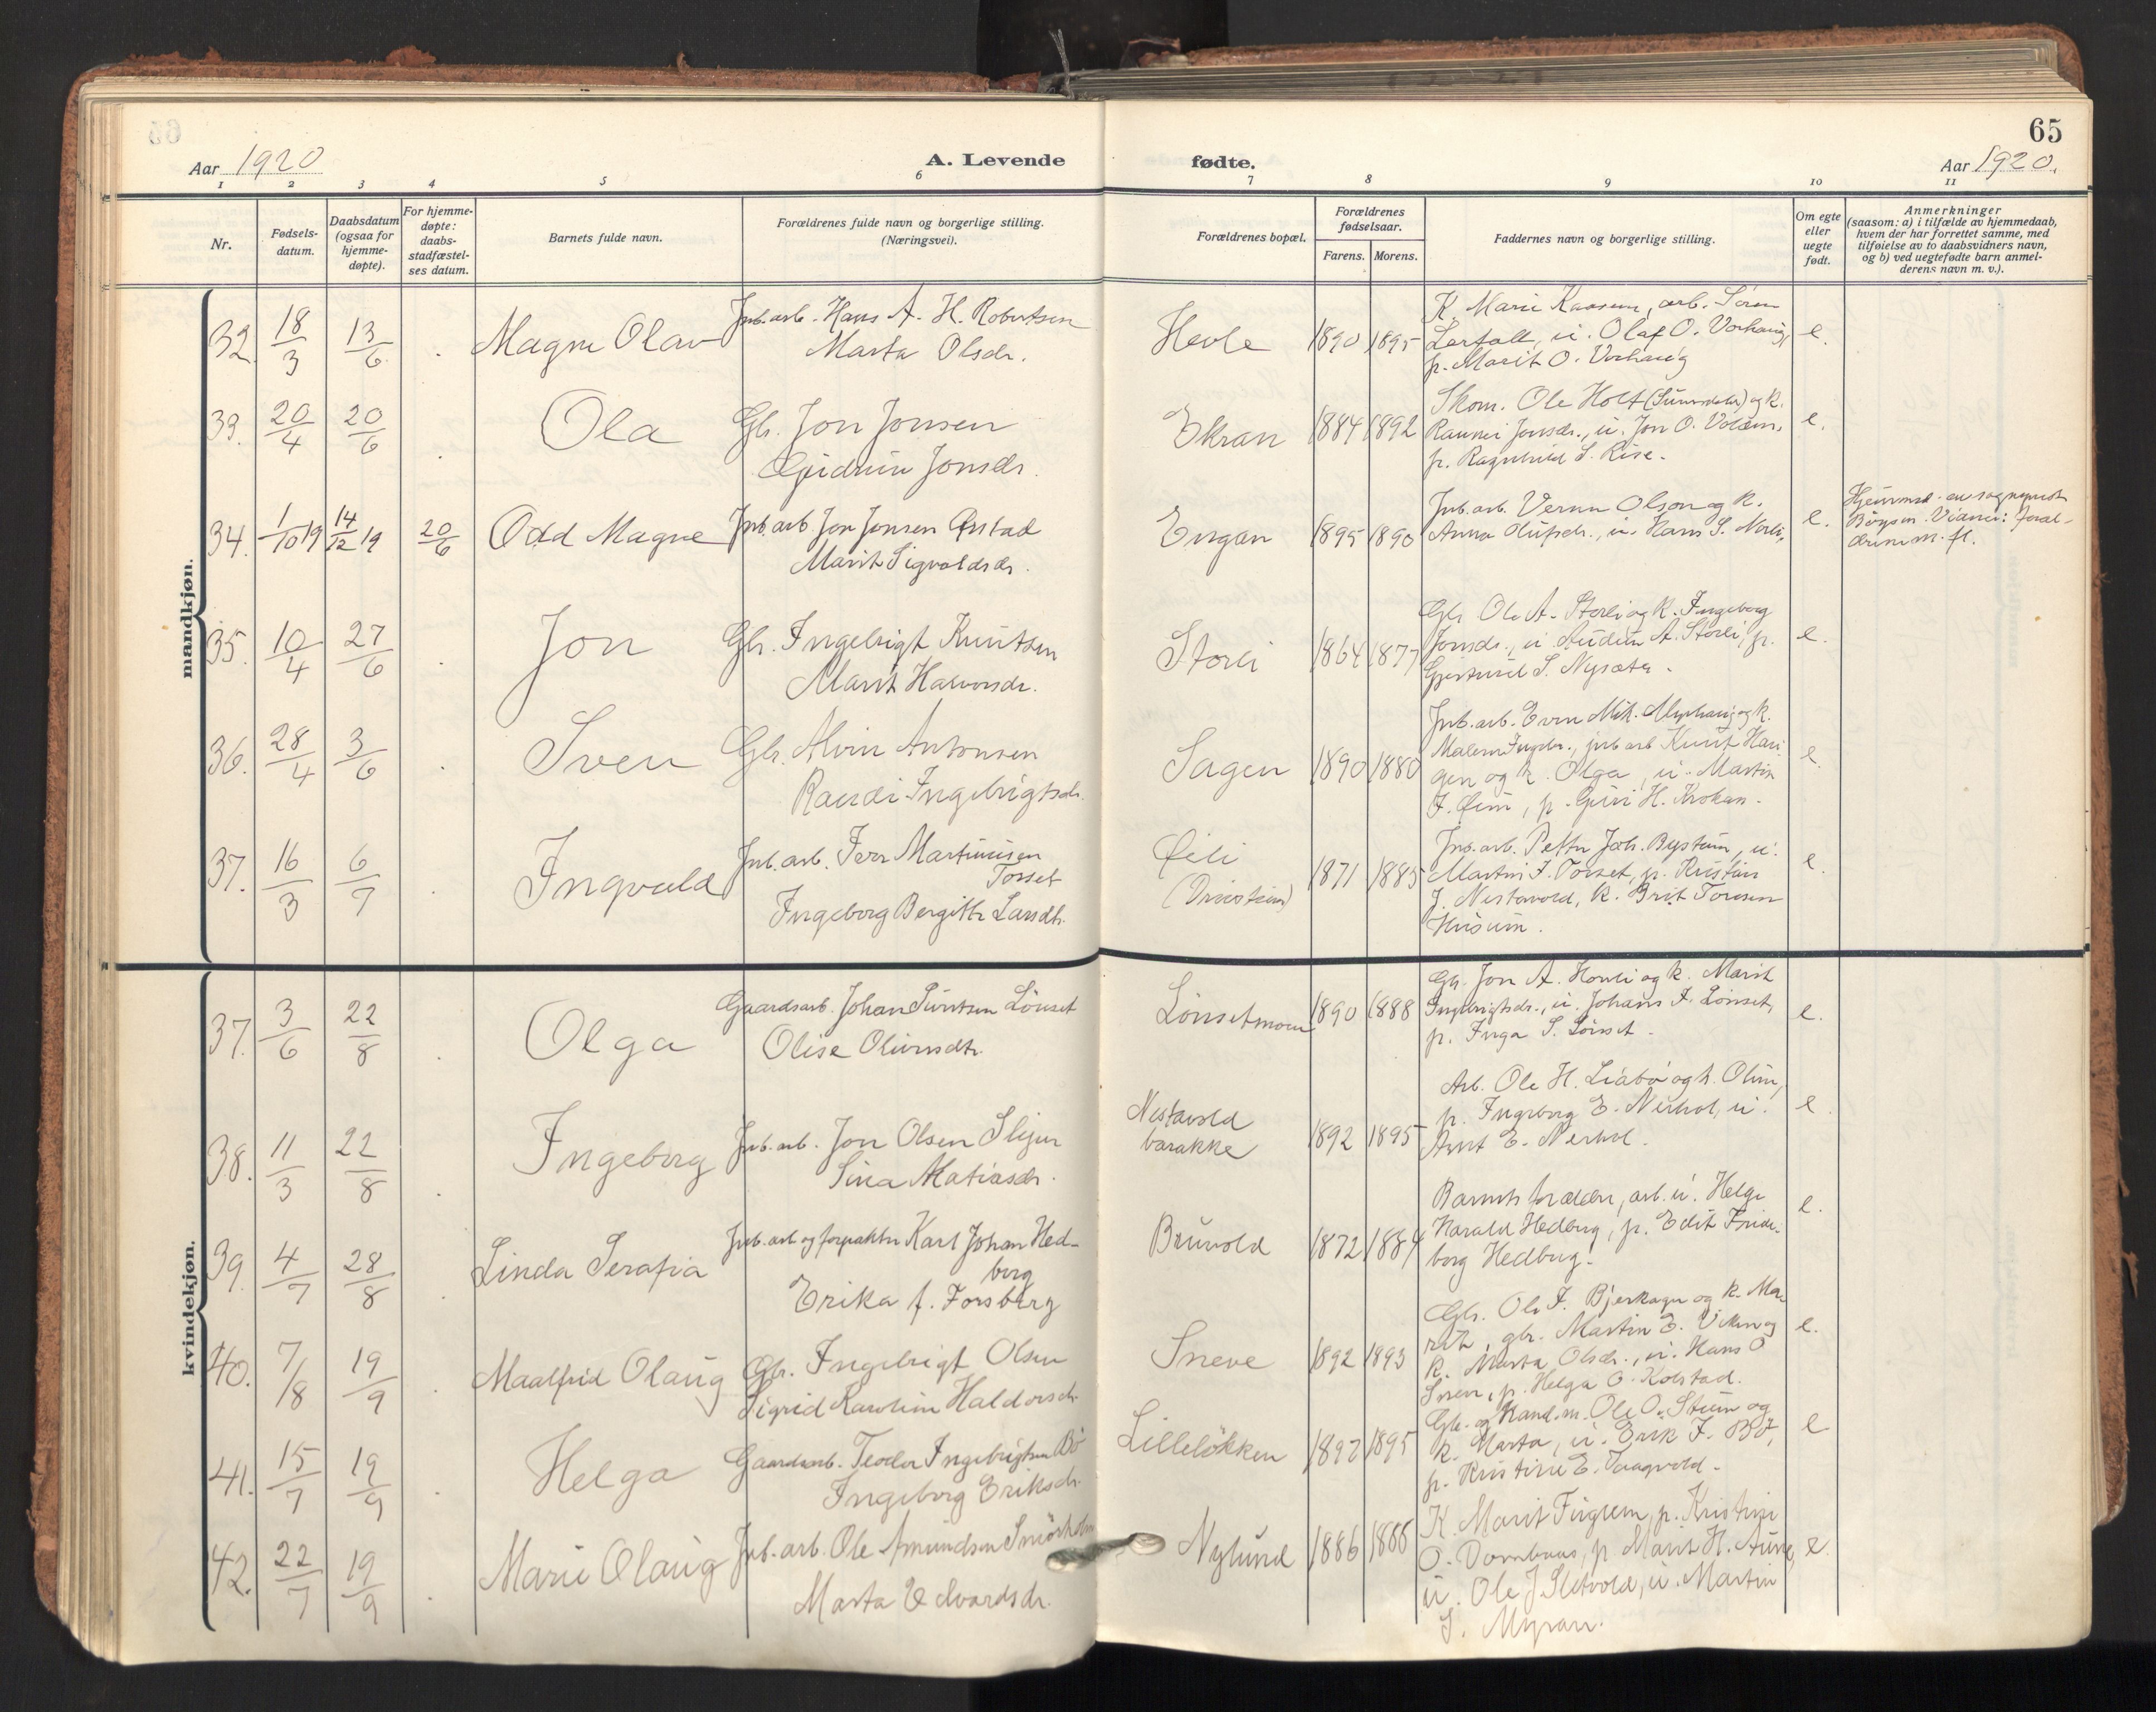 65
Aar 1920
A. Levende fødte.
Aar 1920.
1 2 3 4 5 6 7 8 9 10 11
Nr.
Fødsels-
datum.
Daabsdatum
(ogsaa for
hjemme-
døpte).
For hjemme-
døpte:
daabs-
stadfæstel-
ses datum.
Barnets fulde navn.
Forældrenes fulde navn og borgerlige stilling.
(Næringsvei).
Forældrenes bopæl.
Forældrenes
fødselsaar.
Farens. Morens.
Faddernes navn og borgerlige stilling.
Om egte
eller
uegte
født.
Anmerkninger
(saasom: a) i tilfælde av hjemmedaab,
hvem der har forrettet samme, med
tilføielse av to daabsvidners navn,
og b) ved uegtefødte barn anmel-
derens navn m. v.).
mandkjøn.
32. 18/3 13/6 . Magne Olav
Jnb.arb. Hans A. H. Robertsen
Marta Olsdr.
Hevle 1890 1895
K. Marie Kaasen, arb. Sören
Lerfall, u. Olaf O. Vorhaug,
p. Marit O. Vorhaug
e.
33. 20/4 20/6 . Ola
Gbr. Jon Jonsen
Gudrun Jonsdr.
Ekran 1884 1892
Skom. Ole Holt (Sunndalen) og k.
Rannei Jonsdr., u. Jon O. Volden,
p. Ragnhild S. Rise.
e.
34. 1/10 19 14/12 19 20/6 Odd Magne
Jnb.arb. Jon Jonsen
Marit Sigvaldsdr.
Engan 1895 1890
Jnb.arb. Olson og k.
Anna Olufsdr., u. Hans S. Morli.
e.
m. fl.
35. 10/4 27/6 . Jon
Gbr. Ingebrigt Knutsen
Marit Halvorsdr.
Storli 1864 1877
Gbr. Ole A. Storli og k. Ingeborg
Jonsdr., u. Audun A. Storli, p.
Gjertrud S. Nysæter.
e.
36. 28/4 3/6 . Sven
Gbr. Alvin Antonsen
Randi Ingebrigtsdr.
Sagen 1890 1880
Jnb.arb. Even Mik. og k.
jnb arb Knut Hau-
gen og k. Olga, u. Martin
p. Guri H. Krokan.
e.
37. 16/3 6/7 . Ingvald
Jnb.arb. Iver Martinusen
Torset
Ingeborg Bergitte Larsdtr.
1871 1885
Jnb.arb. Petter Joh. Bystrøm, u.
Martin I. Torset, p. Kristian
J. Nestavold, k. Brit Toresen
Husum.
e.
kvindekjøn.
37. 3/6 22/8 . Olga
Gaardsarb. Johan Sivertsen Lönset
Olise Oliversdtr.
Lönsetmoen 1890 1888
Gbr. Jon A. Horrli og k. Marit
Ingebrigtsdr., u. Johans I. Lönset,
p. Inga S. Lönset.
e.
38. 11/3 22/8 . Ingeborg
Jnb.arb. Jon Olsen Sliper
Lina Matiasdr.
Nestavold
barakke 1892 1895
Arb. Ole H. Liabö og h. Oline,
p. Ingeborg E. Nerhol, u.
Arnt E. Nerhol.
e.
39. 4/7 28/8 . Linda Serafia
Jnb.arb og forpakter Karl Johan Hed-
berg
Erika f. Forsberg
Bruvold 1872 1884
Barnets forældre, arb. u. Helge
Harald Hedberg, p. Edit Fride-
borg Hedberg.
e.
40. 7/8 19/9 . Maalfrid Olaug
Gbr. Ingebrigt Olsen
Sigrid Karoline Haldorsdr.
Sneve 1892 1893
Gbr. Ole I. Bjerkager og k. Ma-
rit, gbr. Martin E. Viken og
k. Marta Olsdr., u. Hans O
Sneve, p. Helga O. Kolstad.
e.
41. 15/7 19/9 . Helga
Gaardsarb. Teodor Ingebrigtsen Bö
Ingeborg Eriksdr.
Lilleløkken 1897 1895
Gbr. og Hand.m. Ole O. Stuen og
k. Marta, u. Erik I. Bö,
p. Kristine E. Taagvold.
e
42. 22/7 19/9 . Marie Olaug
Jnb.arb. Ole Amundsen
Marta Edvardsdr.
Nylund 1886 1886
K. Marit Fuglem, p. Kristine
O. Dombaas, p. Marit H. Aune,
u. Ole J. Sletvold, u. Martin
S. Myran.
e.